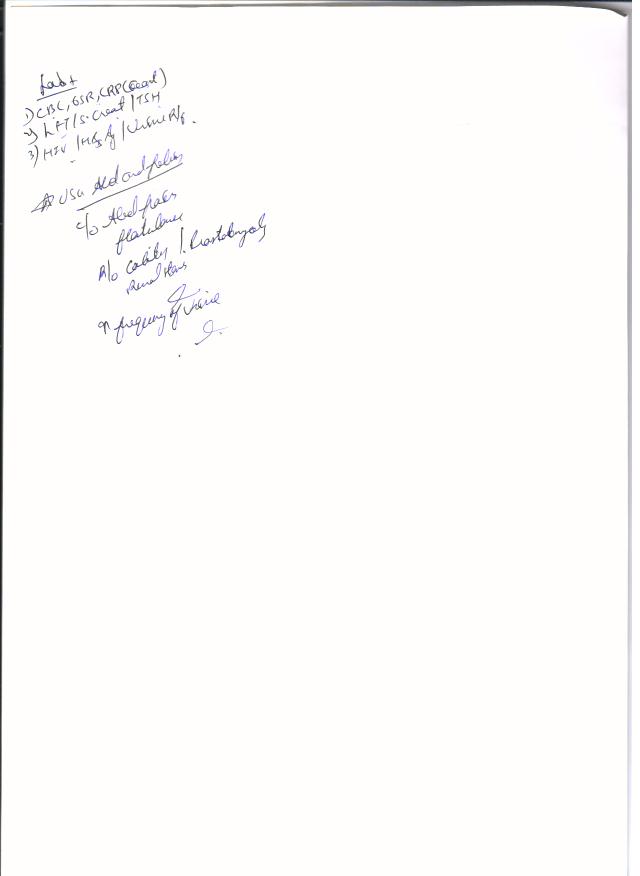 Lab +
1) CBC, ESR, CRP (
2) LFT / S. Creat / TSH
3) HIV / HBsAg / Urine R/
USG Abd and pelvis
c/o Abd pain
flatulence
R/o Colitis / Prostatomegaly
Renal stones
↑ frequency of Urine